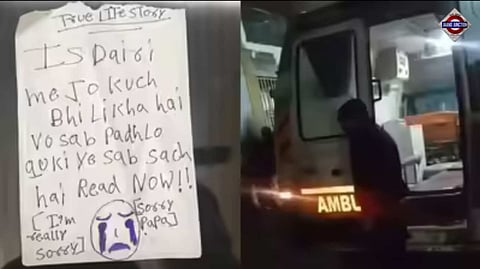 True Life Story
Is Dairi
me Jo kuch
Bhi Likha hai
vo sab Padhlo
quki ye sab sach
hai Read Now!!
[I'm really sorry]
[sorry Papa]
AMBL